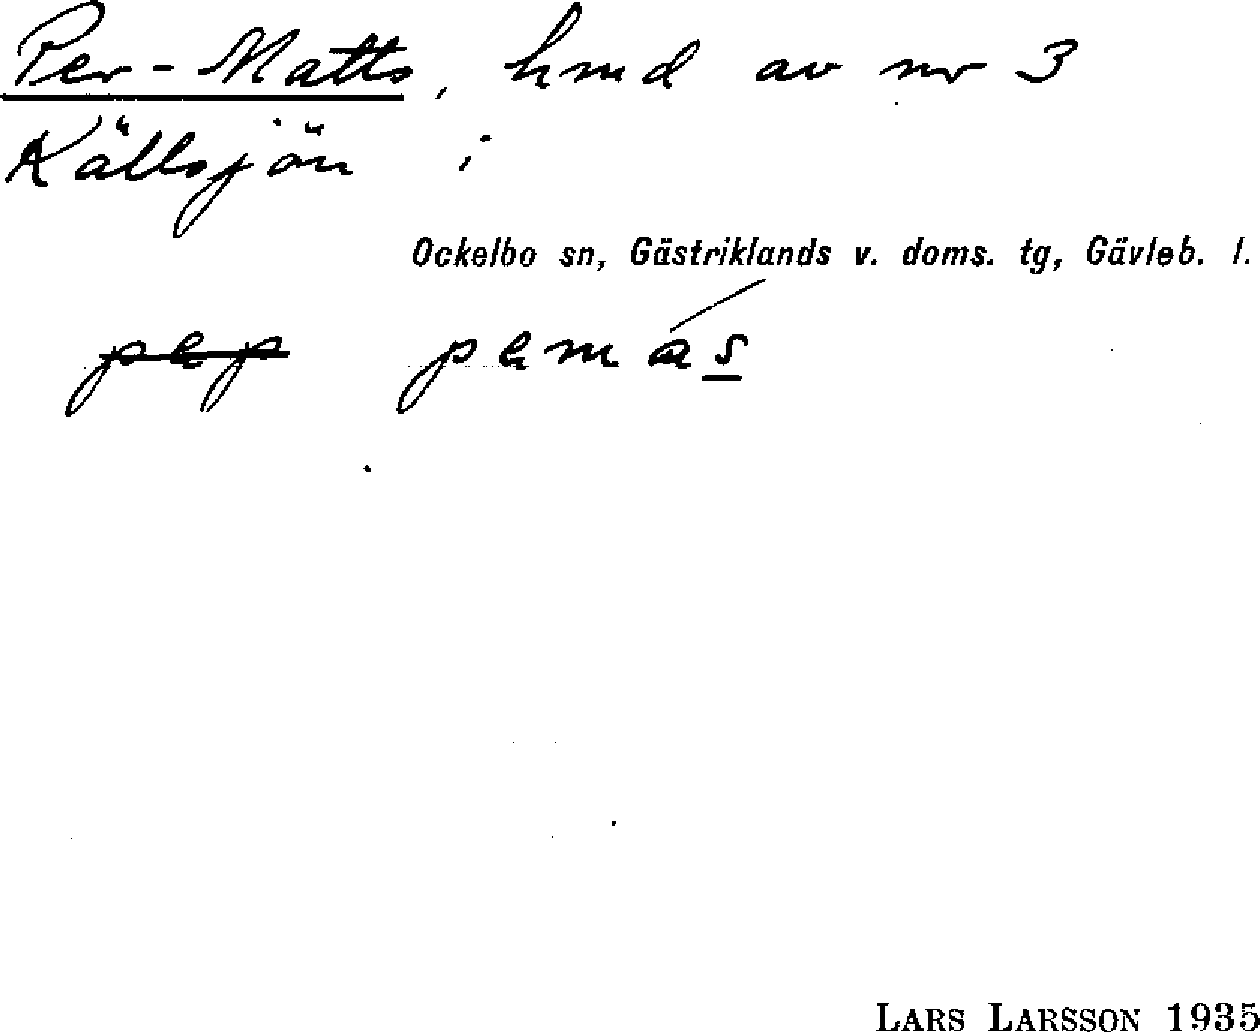 Per-Matts, hmd av nr 3
Källsjön i
Ockelbo sn, Gästriklands v. doms. tg, Gävleb. l.
pep pemas
LARS LARSSON 1935